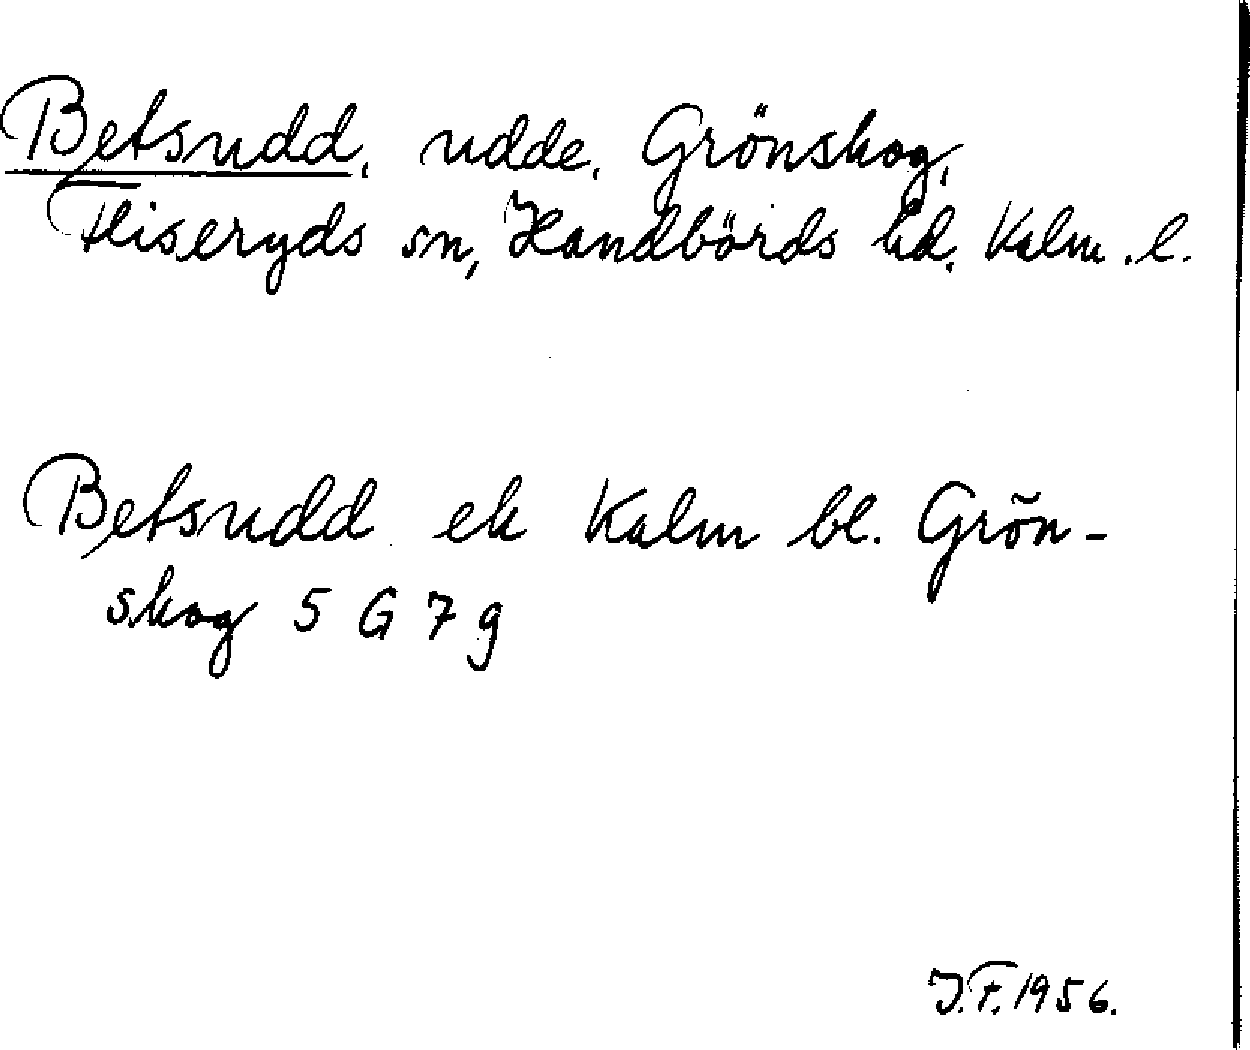 Betsudd, udde, Grönskog,
Fliseryds sn, Handbörds hd. Kalm. l.
Betsudd ek Kalm bl. Grön-
skog 5 G 7 g
J.F. 1956.